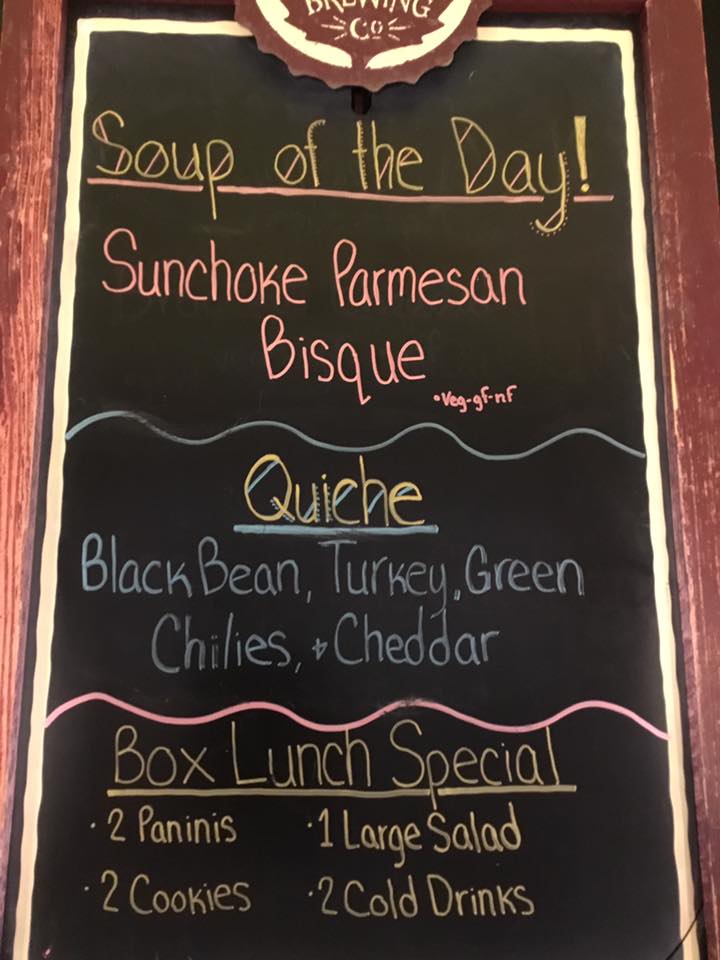 BREWING
Co
Soup of the Day!
Sunchoke Parmesan
Bisque
•Veg-gf-nf
Quiche
Black Bean, Turkey, Green
Chilies, + Cheddar
Box Lunch Special
·2 Paninis ·1 Large Salad
·2 Cookies ·2 Cold Drinks